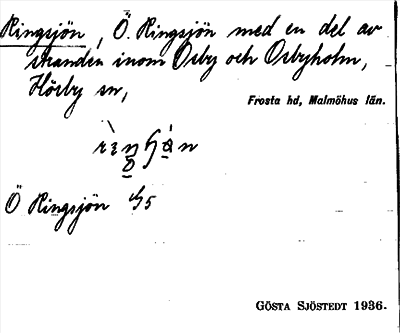 Ringsjön, Ö. Ringsjön med en del av
stranden inom Osby och Osbyholm,
Hörby sn,
Frosta hd, Malmöhus län.
Ö Ringsjön 4/5
GÖSTA SJÖSTEDT 1936.